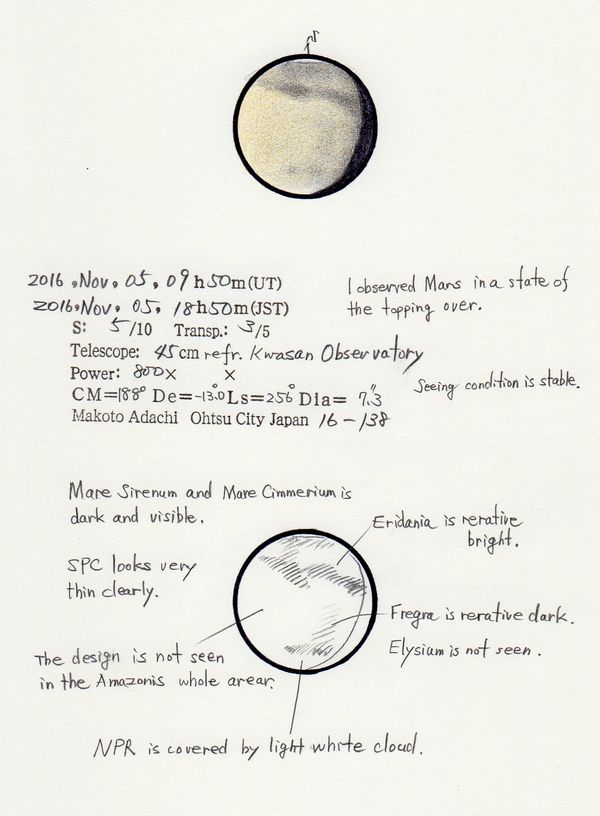 S
2016, Nov, 05, 09h50m(UT)
2016, Nov, 05, 18h50m(JST)
S: 5/10 Transp.: 3/5
Telescope: 45cm refr. Kwasan Observatory
Power: 800× ×
CM=188° De=-13.0° Ls=256° Dia= 7.3"
Makoto Adachi Ohtsu City Japan 16-138
I observed Mars in a state of
the topping over.
Seeing condition is stable.
Mare Sirenum and Mare Cimmerium is
dark and visible.
Eridania is rerative
bright.
SPC looks very
thin clearly.
Fregra is rerative dark.
Elysium is not seen.
The design is not seen
in the Amazonis whole arear.
NPR is covered by light white cloud.